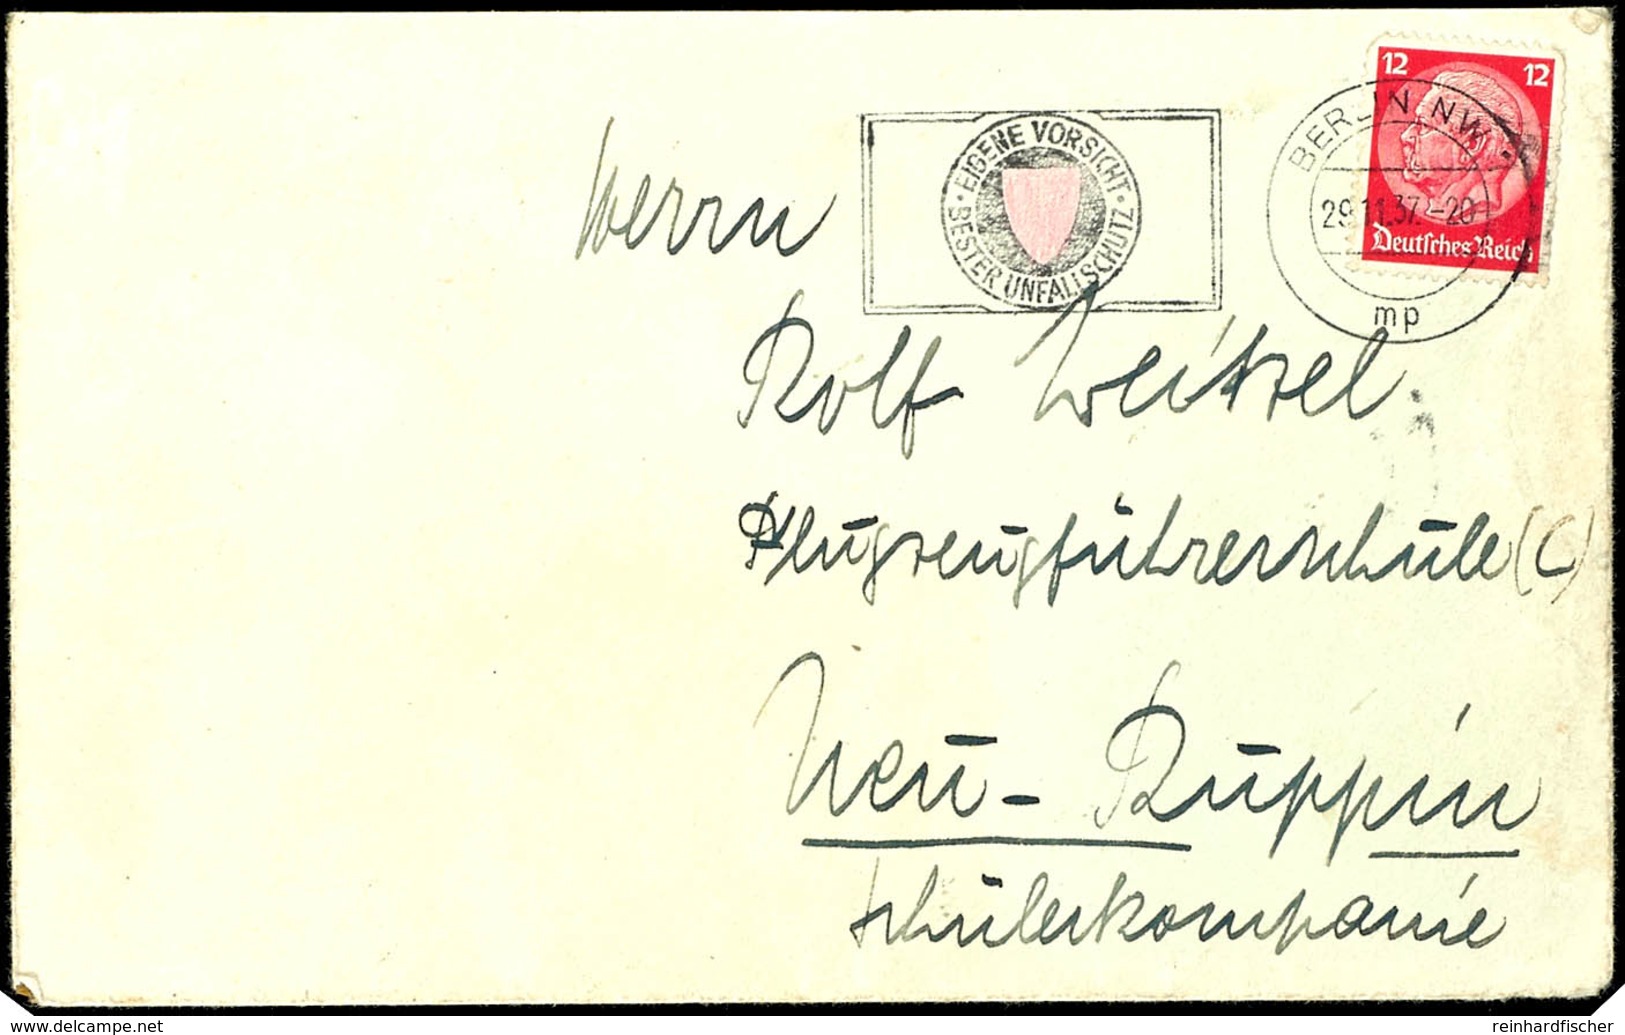 12 12
BERLIN NW
29.11.37.-20
Deutsches Reich
mp
· EIGENE VORSICHT ·
BESTER UNFALLSCHUTZ
Herrn
Rolf Weitzel
Flugzeugführerschule (C)
Neu-Ruppin
Schülerkompanie
www.delcampe.net
reinhardfischer